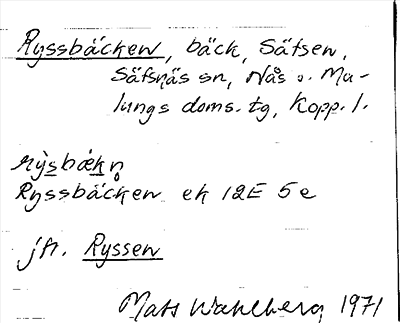 Ryssbäcken, bäck, Säfsen,
Säfsnäs sn, Nås o. Ma-
lungs doms. tg, Kopp. l.
rỳsbækn̥
Ryssbäcken ek 12E 5e
jfr. Ryssen
Mats Wahlberg 1971